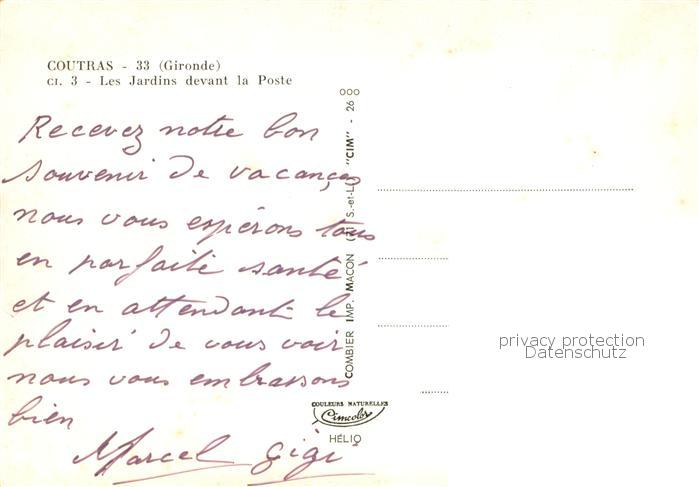 COUTRAS - 33 (Gironde)
CI. 3 - Les Jardins devant la Poste
Recevez notre bon
souvenir de vacances
nous vous espérons tous
en parfaite santé
et en attendant le
plaisir de vous voir
nous vous embrassons
bien
Marcel Gigi
COMBIER IMP. MACON (S.-et-L.) "CIM" - 26 000
COULEURS NATURELLES
Cimcolor
HÉLIO
privacy protection
Datenschutz